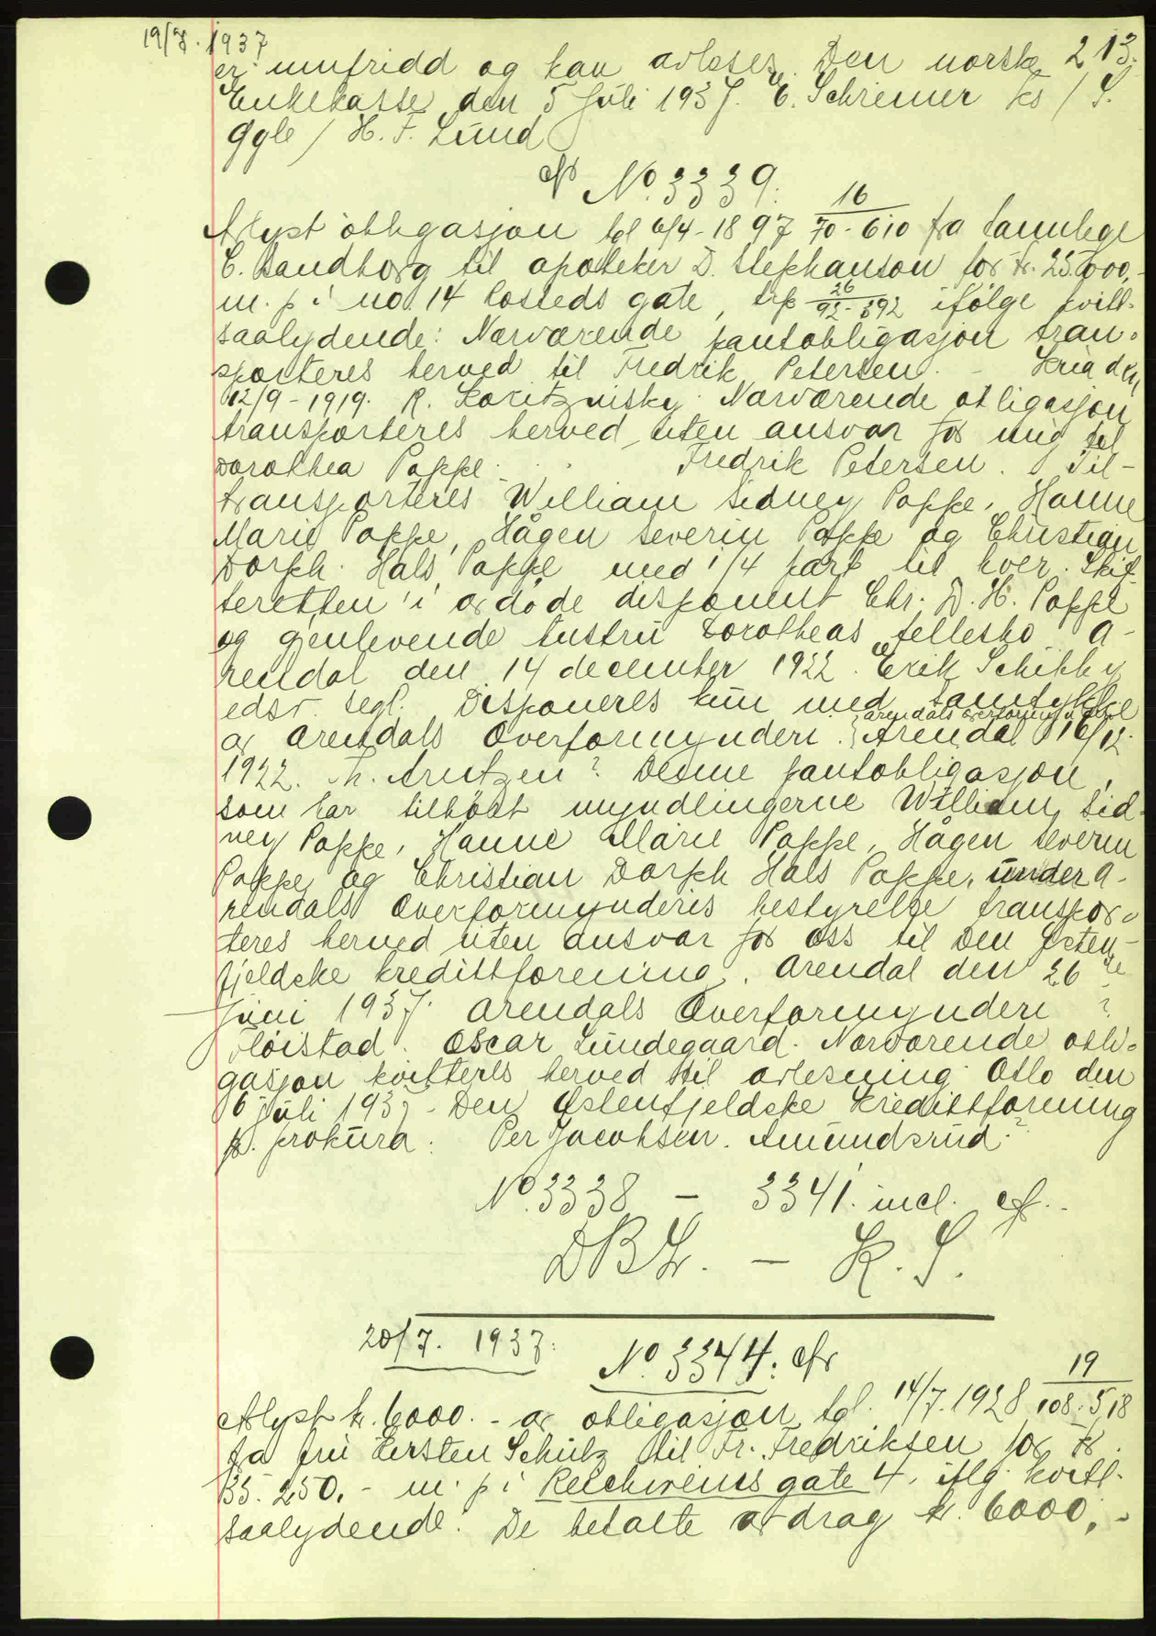 19/7. 1937
213.
er uinnfridd og kan avleses. Den norske
Enkekasse den 5 juli 1937. E. Schreiner ks / S.
Ggle / H. F. Lund
No. 3339.
Avlyst obligasjon tgl 6/4-1897 16/70-610 fra tannlege
C. Sandborg til apoteker D. Stephanson for kr. 25.000,-
m. p i no 14 Losseds gate, trp 26/92-392 ifølge kvitt.
saalydende: Nærværende pantobligasjon tran-
sporteres herved til Fredrik Petersen. - Kria den
12/9-1919. R. Koritzinsky. Nærværende obligasjon
transporteres herved uten ansvar for mig til
Dorothea Poppe. Fredrik Petersen. Til-
transporteres William Sidney Poppe, Hanne
Marie Poppe, Hågen Severin Poppe og Christian
Dorph Hals Poppe med 1/4 part til hver. Skif-
teretten i avdøde disponent Chr. D. H. Poppe
og gjenlevende hustru Dorotheas fellesbo A-
rendal den 14 december 1922. Erik Schibby
edsv. segl. Disponeres kun med samtykke
av Arendals Overformynderi. Arendals overformynderi Arendal 16/12.
1922. Th. Arntzen? Denne pantobligasjon,
som har tilhørt myndlingerne William Sid-
ney Poppe, Hanne Marie Poppe, Hågen Severin
Poppe og Christian Dorph Hals Poppe, under A-
rendals Overformynderis bestyrelse transpor-
teres herved uten ansvar for oss til Den Østen-
fjeldske kredittforening. Arendal den 26de
juni 1937. Arendals Overformynderi ?
Fløistad. Oscar Lundegaard. Nærværende obli-
gasjon kvitteres herved til avlesning. Oslo den
6 juli 1937 - Den Østenfjeldske Kredittforening
p. prokura. Per Jacobsen. Amundsrud?
No. 3338 - 3341. incl. cfr.
DBL. - K. S.
20/7. 1937. No. 3344. cfr
Avlyst kr. 6000.- av obligasjon tgl. 14/7.1928 19/108-518
fra fru Kirsten Schulz til Fr. Fredriksen for kr.
35.250.- m. p i Reichweins gate 4. iflg. kvitt.
saalydende: De betalte avdrag kr. 6000,-